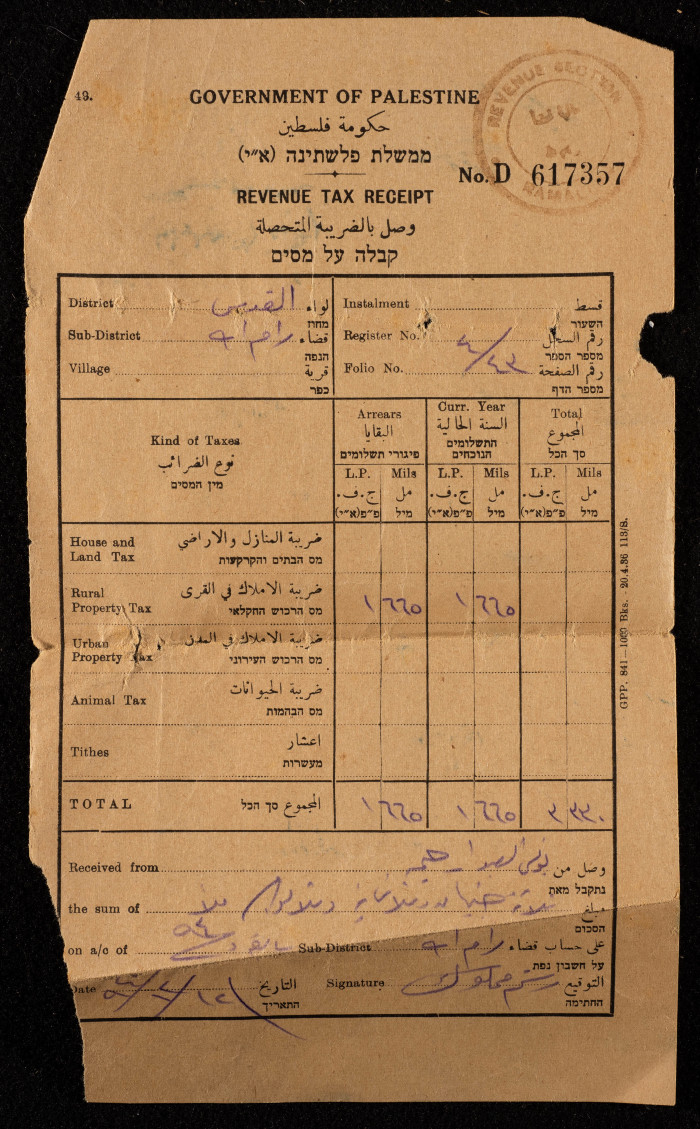 49.
GOVERNMENT OF PALESTINE
حكومة فلسطين
ממשלת פלשתינה (א״י)
REVENUE SECTION
No. D 617357
REVENUE TAX RECEIPT
وصل بالضريبة المتحصلة
קבלה על מסים
District القدس لواء
מחוז
Sub-District رام الله قضاء
הנפה
Village قرية
כפר
Instalment قسط
השעור
Register No. رقم السجل
מספר הספר
Folio No. ٤/٤٣ رقم الصفحة
מספר הדף
Kind of Taxes
نوع الضرائب
מין המסים
Arrears
البقايا
פיגורי תשלומים
Curr. Year
السنة الحالية
התשלומים
הנוכחים
Total
المجموع
סך הכל
L.P. Mils L.P. Mils L.P. Mils
ج.ف. مل ج.ف. مل ج.ف. مل
פ״פ(א״י) מיל פ״פ(א״י) מיל פ״פ(א״י) מיל
House and Land Tax ضريبة المنازل والاراضي
מס הבתים והקרקעות
Rural Property Tax ضريبة الاملاك في القرى
מס הרכוש החקלאי
١ ٦٦٥ ١ ٦٦٥
Urban Property Tax ضريبة الاملاك في المدن
מס הרכוש העירוני
Animal Tax ضريبة الحيوانات
מס הבהמות
Tithes اعشار
מעשרות
TOTAL المجموع סך הכל ١ ٦٦٥ ١ ٦٦٥ ٣ ٣٣٠
Received from وصل من
נתקבל מאת
the sum of مبلغ
הסכום
on a/c of Sub-District رام الله على حساب قضاء
על חשבון נפת
Date التاريخ
התאריך
Signature التوقيع
החתימה
GPP. 841—1000 Bks.—20.4.36 113/B.